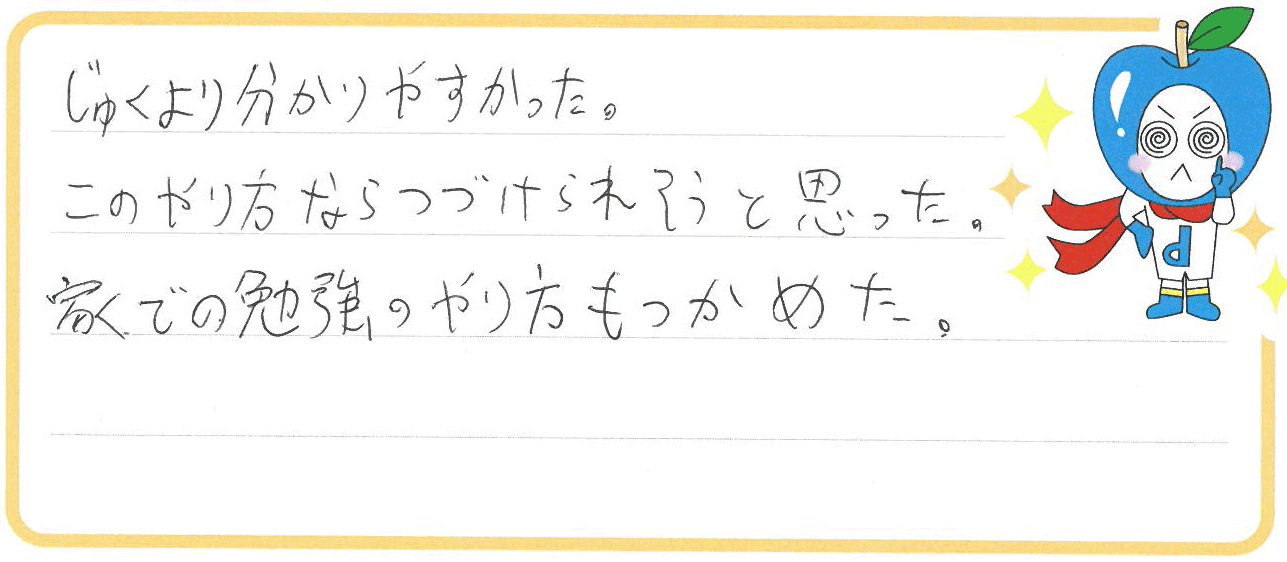 じゅくより分かりやすかった。
このやり方ならつづけられそうと思った。
家での勉強のやり方もつかめた。